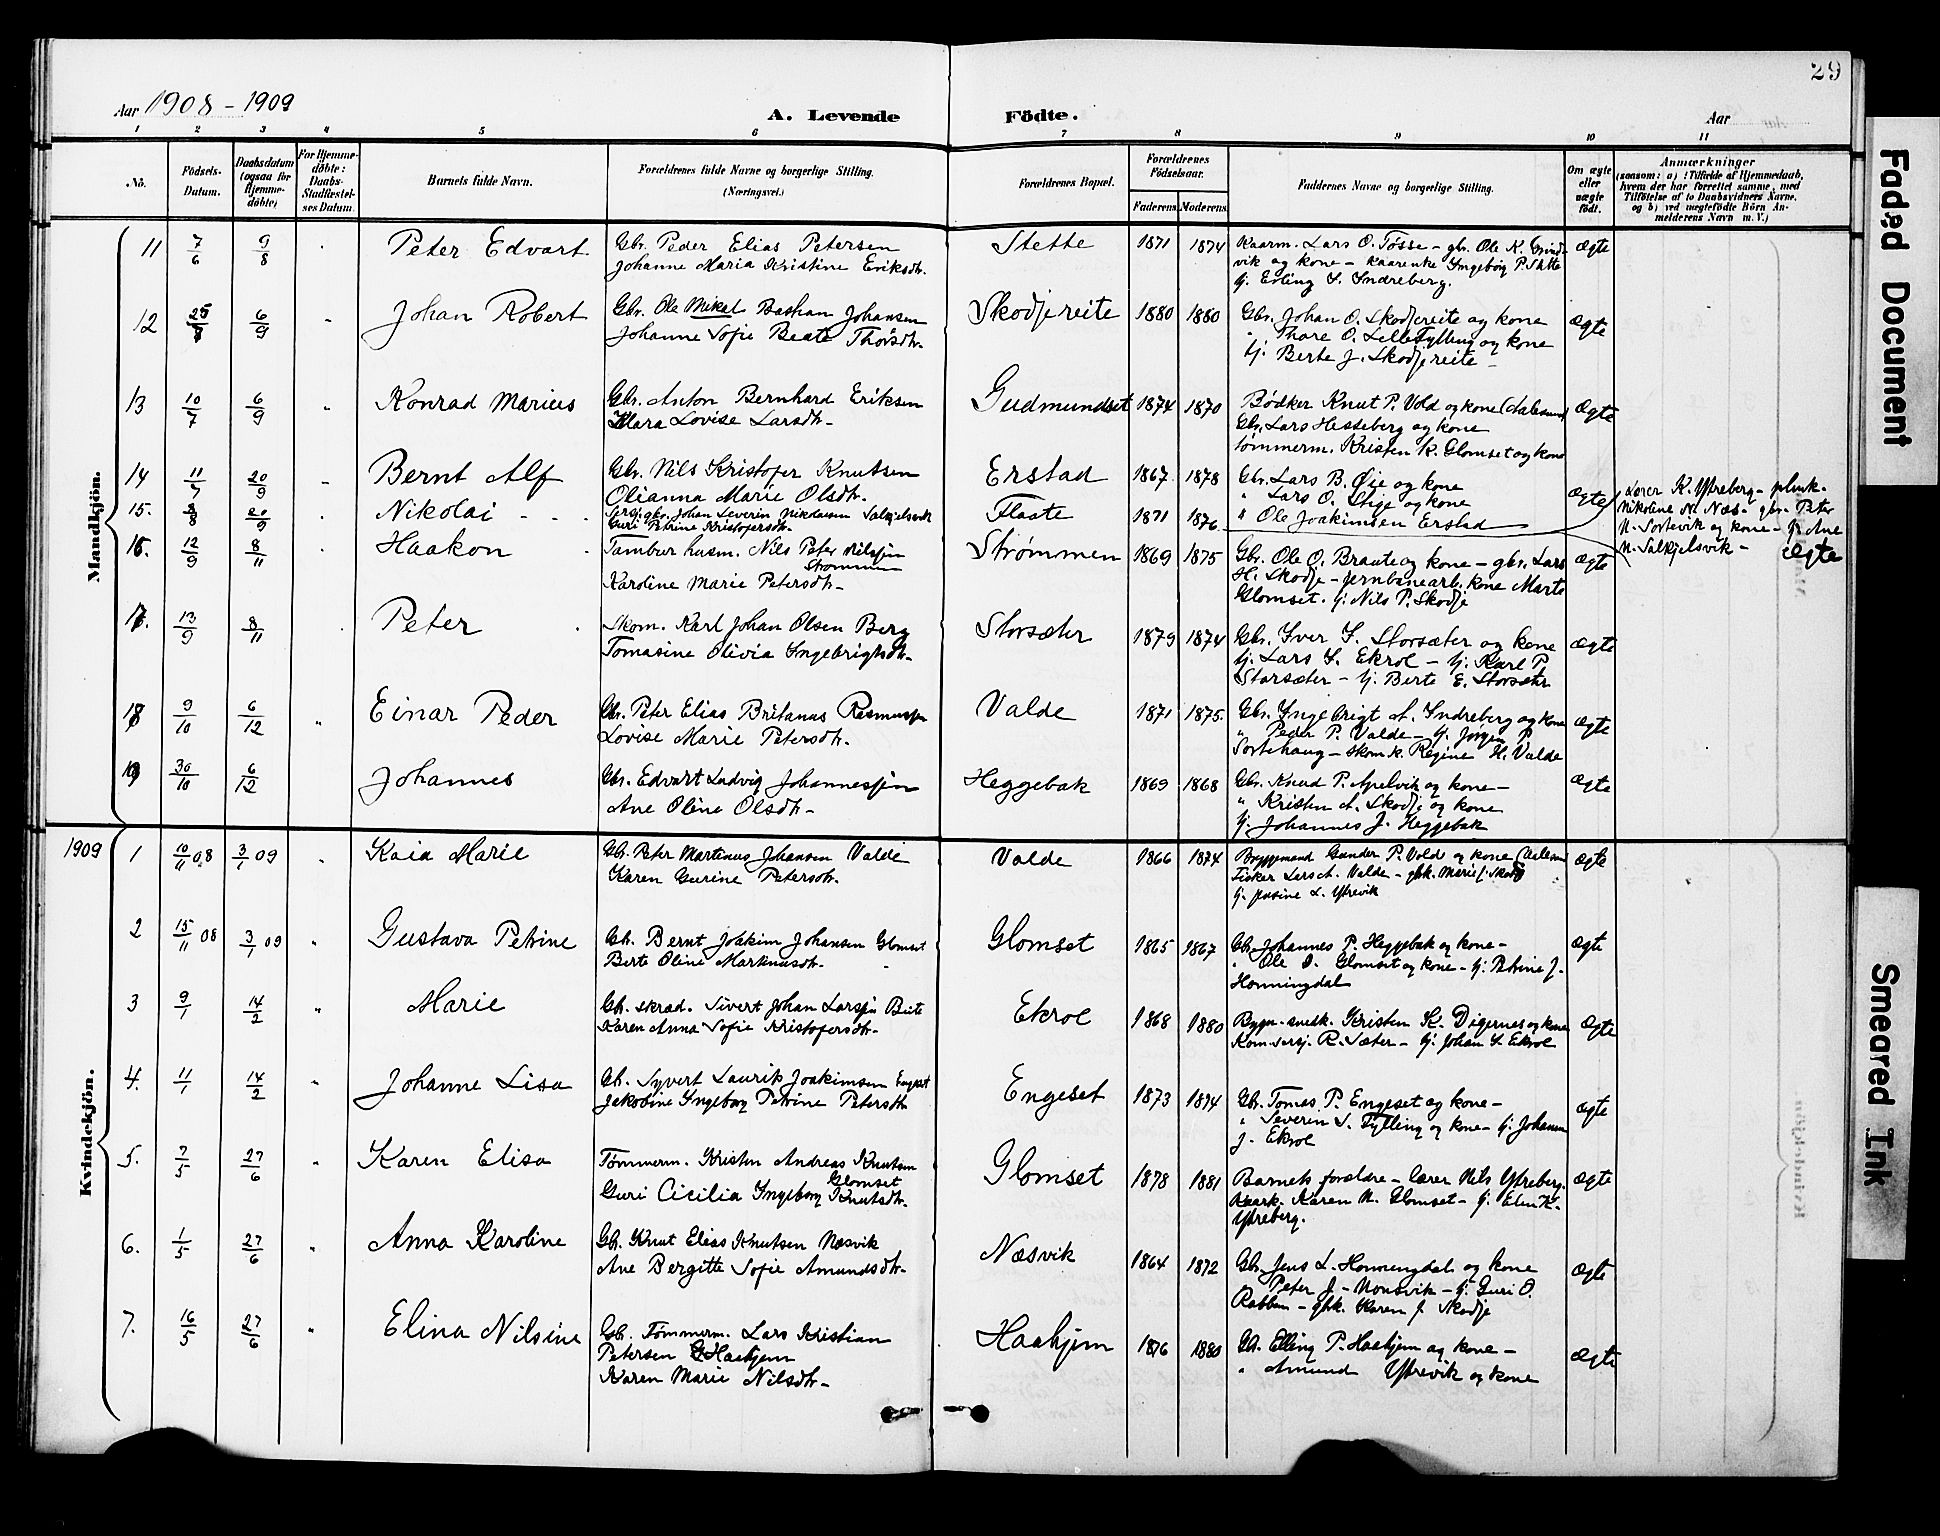 29
Aar 1908 - 1909
A. Levende Födte.
Aar
1 2 3 4 5 6 7 8 9 10 11
No.
Födsels-Datum.
Daabsdatum (ogsaa for Hjemme-döbte)
For Hjemme-döbte: Daabs-Stadfæstel-ses Datum.
Barnets fulde Navn.
Forældrenes fulde Navne og borgerlige Stilling. (Næringsvei.)
Forældrenes Bopæl.
Forældrenes Födselsaar.
Faderens Moderens
Faddernes Navne og borgerlige Stilling.
Om ægte eller uægte födt.
Anmærkninger
(saasom: a) i Tilfælde af Hjemmedaab,
hvem der har forrettet samme, med
Tilföielse af to Daabsvidners Navne,
og b) ved uægtefödte Börn An-
melderens Navn m. V.)
Mandkjön.
11 7/6 9/8 Peter Edvart Gbr. Peder Elias Petersen Stette 1871 1874 Kaarm. Lars O. Tøsse - gbr. Ole K. Grind- Ægte
Johanne Maria Kristine Eriksdtr. vik og kone - Kaarenke Ingebørg P. Stette
Erling S. Indreberg.
12 25 6/9 Johan Robert Gbr. Ole Mikal Bashan Johansen Skodjereite 1880 1880 Gbr. Johan O. Skodjereite og kone Ægte
Johanne Sofie Beate Thorsdtr. " Thore O. Lilletylling og kone
Berte J. Skodjereite -
13 10/7 6/9 Konrad Marius Gbr. Anton Bernhard Eriksen Gudmundset 1874 1870 Bødker Knut P. Vold og kone (Aalesund) Ægte
Klara Lovise Larsdtr. Gbr. Lars Hesseberg og kone
Tømmerm. Kristen K. Glomset og kone
14 11/7 20/9 Bernt Alf Gbr. Nils Kristofer Knutsen Erstad 1867 1878 Gbr. Lars B. Øie og kone Ægte
Olianna Marie Olsdtr. " Lars O. Stige og kone
15. 8/8 20/9 Nikolai - - - gbr. Johan Severin Nikolaisen Salkjelsvik Flaate 1871 1876 " Ole Joakimsen Erstad
Guri Petrine Kristofersdtr.
Lærer K. Ytreberg -
Nikoline N. Næs - gbr. Peter
N. Sortevik og kone - Ane
N. Salkjelsvik - Ægte
16. 12/9 8/11 Haakon Tambur husm. Nils Peter Nilssen Strømmen Strømmen 1869 1875 Gbr. Ole O. Braute og kone - gbr. Lars Ægte
Karoline Marie Petersdtr. H. Skodje - jernbanearb. kone Marte
Glomset. Nils P. Skodje
17. 13/9 8/11 Peter Skom. Karl Johan Olsen Berg Storsæter 1879 1874 Gbr. Iver I. Storsæter og kone Ægte
Tomasine Olivia Ingebrigtsdtr. Lars I. Ekrol - Karl P.
Storsæter - Berte E. Storsæter
18 9/10 6/12 Einar Peder Gbr. Peter Elias Britanus Rasmussen Valde 1871 1875. Gbr. Ingebrigt A. Indreberg og kone Ægte
Lovise Marie Petersdtr. " Peder P. Valde - Jørgen P.
Sortehaug - skom.k. Regine H. Valde
19 30/10 6/12 Johannes Gbr. Edvart Ludvig Johannessen Heggebak 1869 1868 Gbr. Knud P. Apelvik og kone - Ægte
Ane Oline Olsdtr. " Kristen A. Skodje og kone
Johannes J. Heggebak
1909
Kvindekjön.
1 10/11 08 3/1 09 Kaia Marie Gbr. Peter Martinus Johansen Valde Valde 1866 1874 Bryggemand Gunder P. Vold og kone Aalesund Ægte
Karen Gurine Petersdtr. Fisker Lars A. Valde - gbk. Marie J. Skodje
Jensine L. Ytrevik
2 15/11 08 3/1 09 Gustava Petrine Gbr. Bernt Joakim Johansen Glomset Glomset 1865 1867 Gbr. Johannes P. Heggebak og kone - Ægte
Berte Oline Markusdtr. " Ole O. Glomset og kone - Petrine J.
Honningdal
3 9/1 14/2 Marie Gbr. skrad. Sivert Johan Larssen Ekrol 1868 1880 Bygn. snedk. Kristen K. Digernes og kone Ægte
Karen Anna Sofie Kristofersdtr. R. Sæter - Johan I. Ekrol
4. 11/1 14/2 Johanne Lisa Gbr. Syvert Laurik Joakimsen Engeset Engeset 1873 1874 Gbr. Tomas P. Engeset og kone - Ægte
Jakobine Ingeborg Petrine Petersdtr. " Severin S. Tylling og kone - Johanne
J. Ekrol
5. 7/5 27/6 Karen Elisa Tømmerm. Kristen Andreas Knutsen Glomset Glomset 1878 1881 Barnets forældre - lærer Nils Ytreberg. Ægte
Guri Cicilia Ingeborg Knutsdtr. Karen N. Glomset - Elen K.
Ytreberg.
6. 1/5 27/6 Anna Karoline Gbr. Knut Elias Knutsen Næsvik Næsvik 1864 1872 Gbr. Jens L. Honningdal og kone Ægte
Ane Bergitte Sofie Amundsdtr. Peter J. - Guri O.
Rabben - gbk. Karen J. Skodje
7. 16/5 27/6 Elina Nilsine Gbr. Tømmerm. Lars Kristian Haahjem 1876 1880 Gbr. Elling P. Haahjem og kone - Ægte
Petersen Haahjem " Amund Ytrevik og kone
Karen Marie Nilsdtr.
Faded Document
Smeared Ink